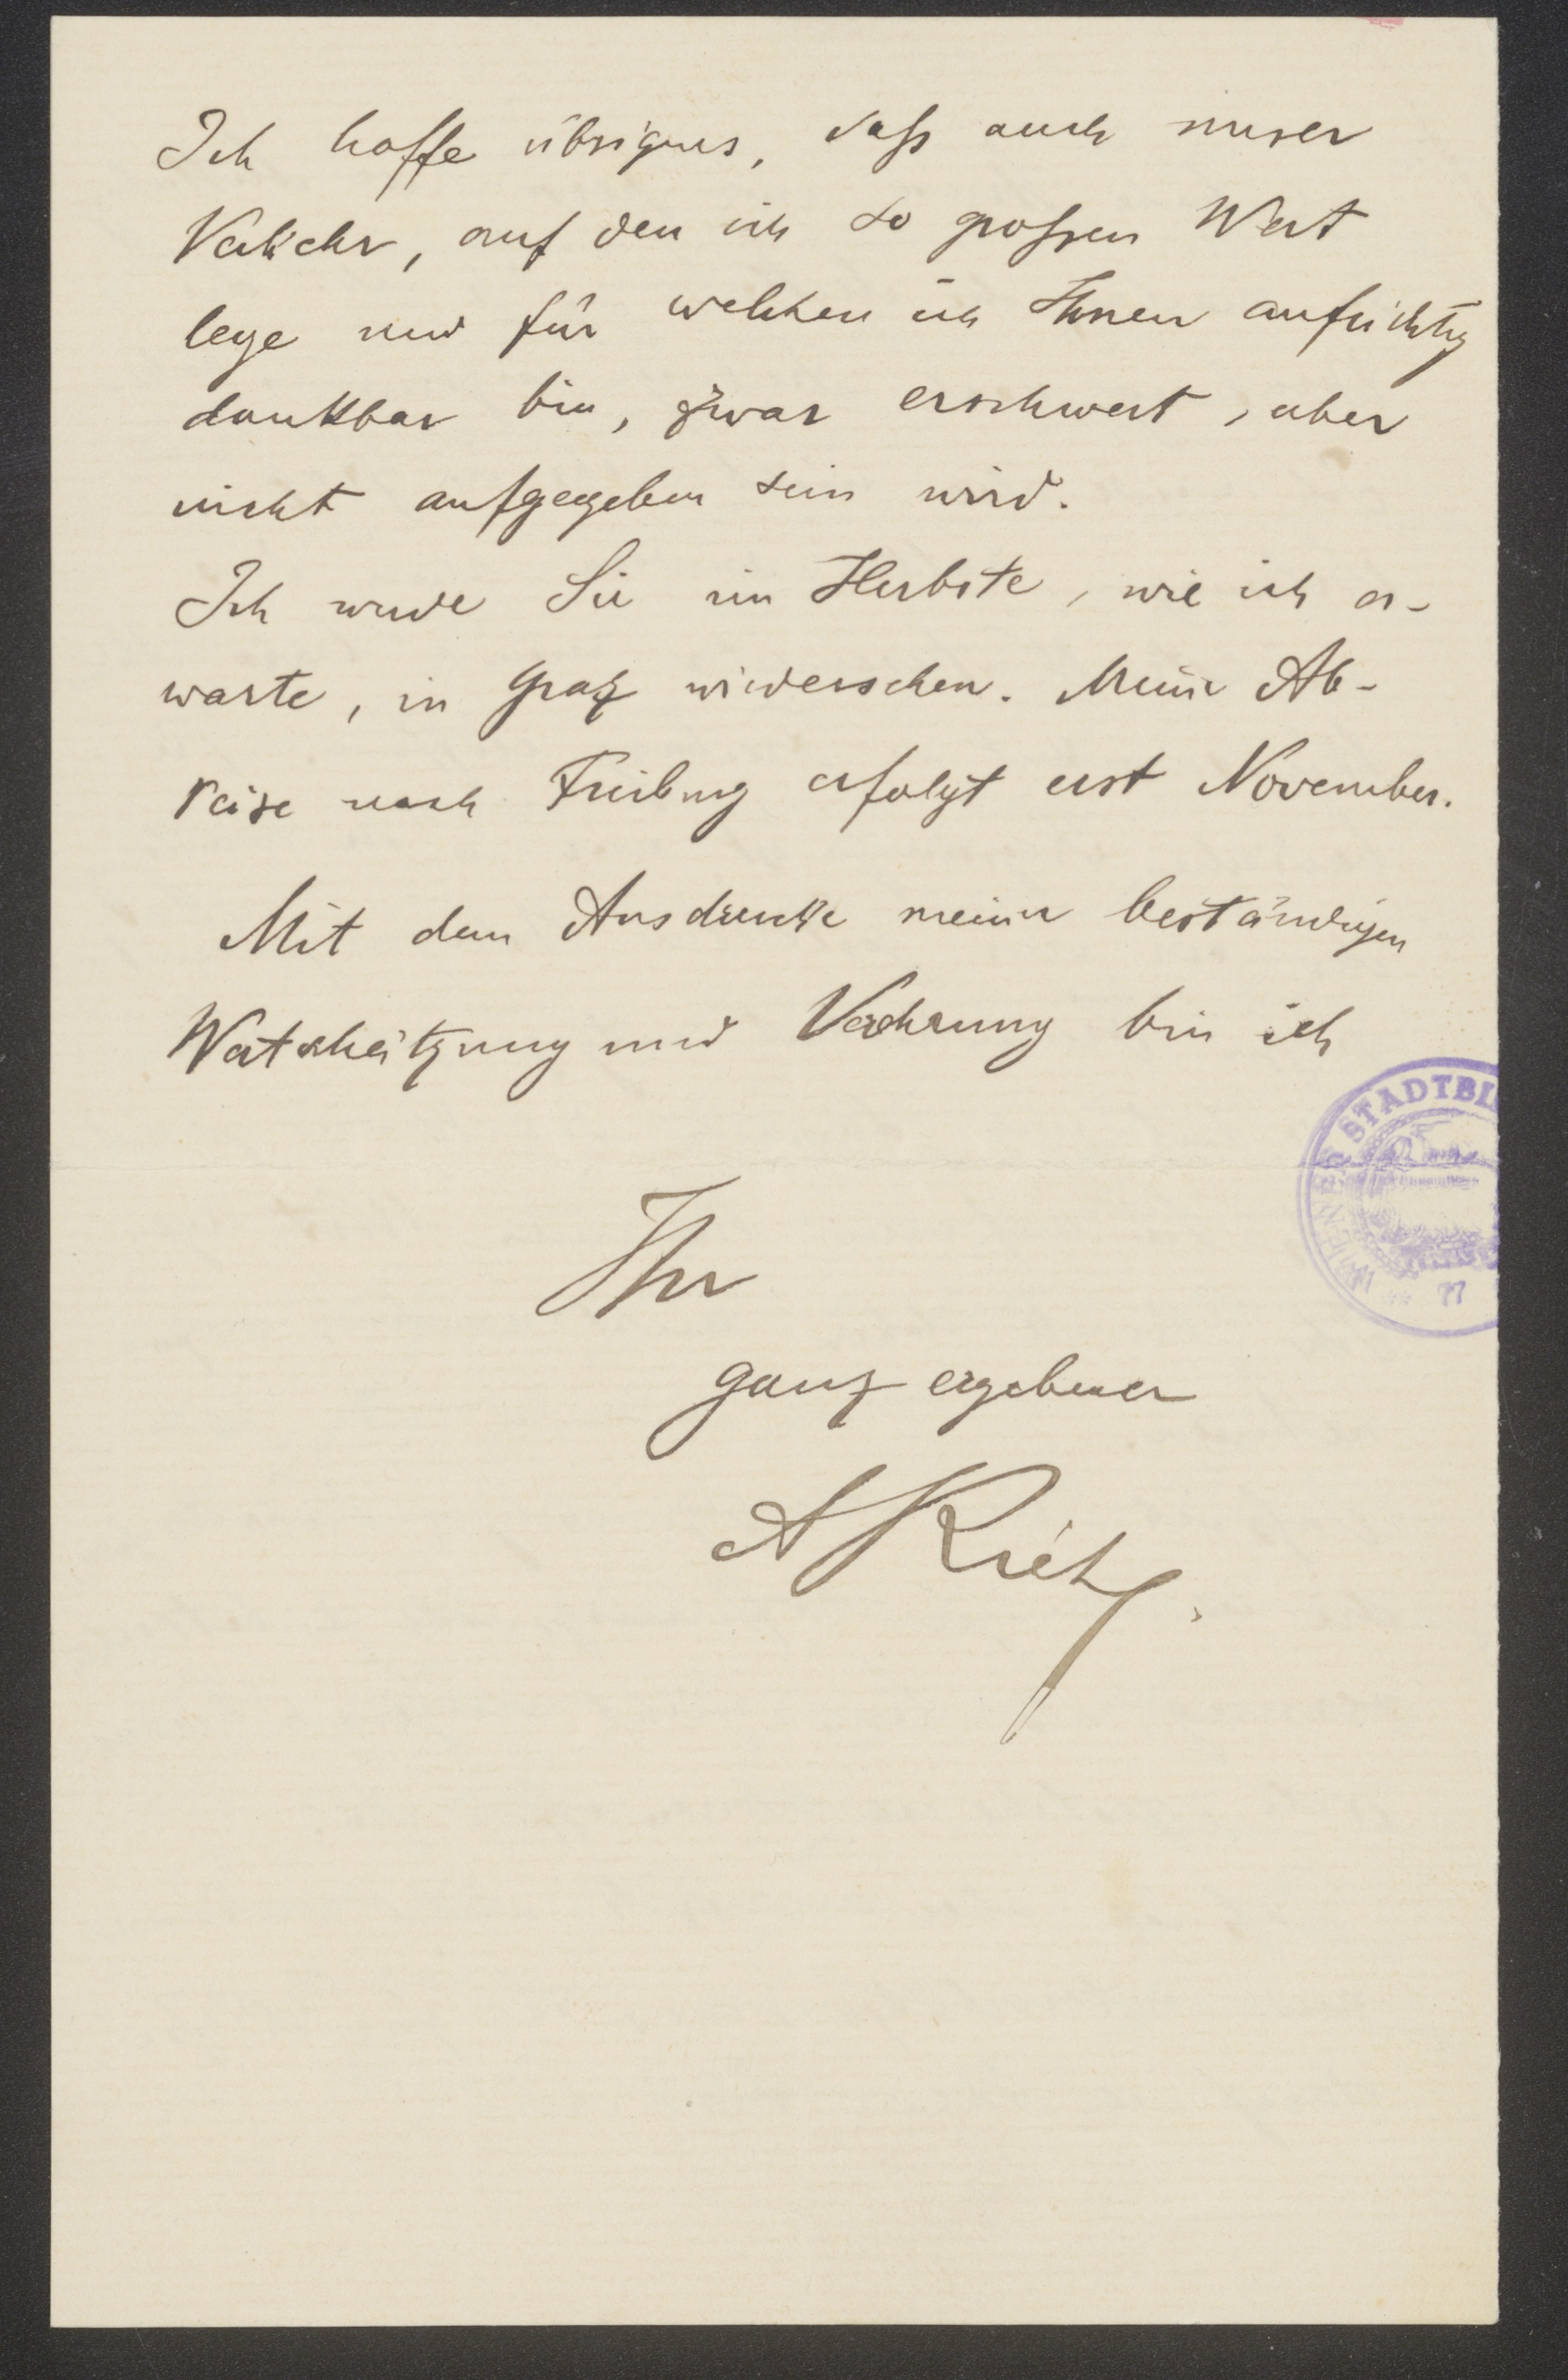 Ich hoffe übrigens, daß auch unser
Verkehr, auf den ich so großen Wert
lege und für welchen ich Ihnen aufrichtig
dankbar bin, zwar erschwert, aber
nicht aufgegeben sein wird.
Ich werde Sie im Herbste, wie ich er-
warte, in Graz wiedersehen. Meine Ab-
reise nach Freiburg erfolgt erst November.
Mit dem Ausdrucke meiner beständigen
Wertschätzung und Verehrung bin ich
Ihr
ganz ergebener
A Riehl.
WIENER STADTBI
77